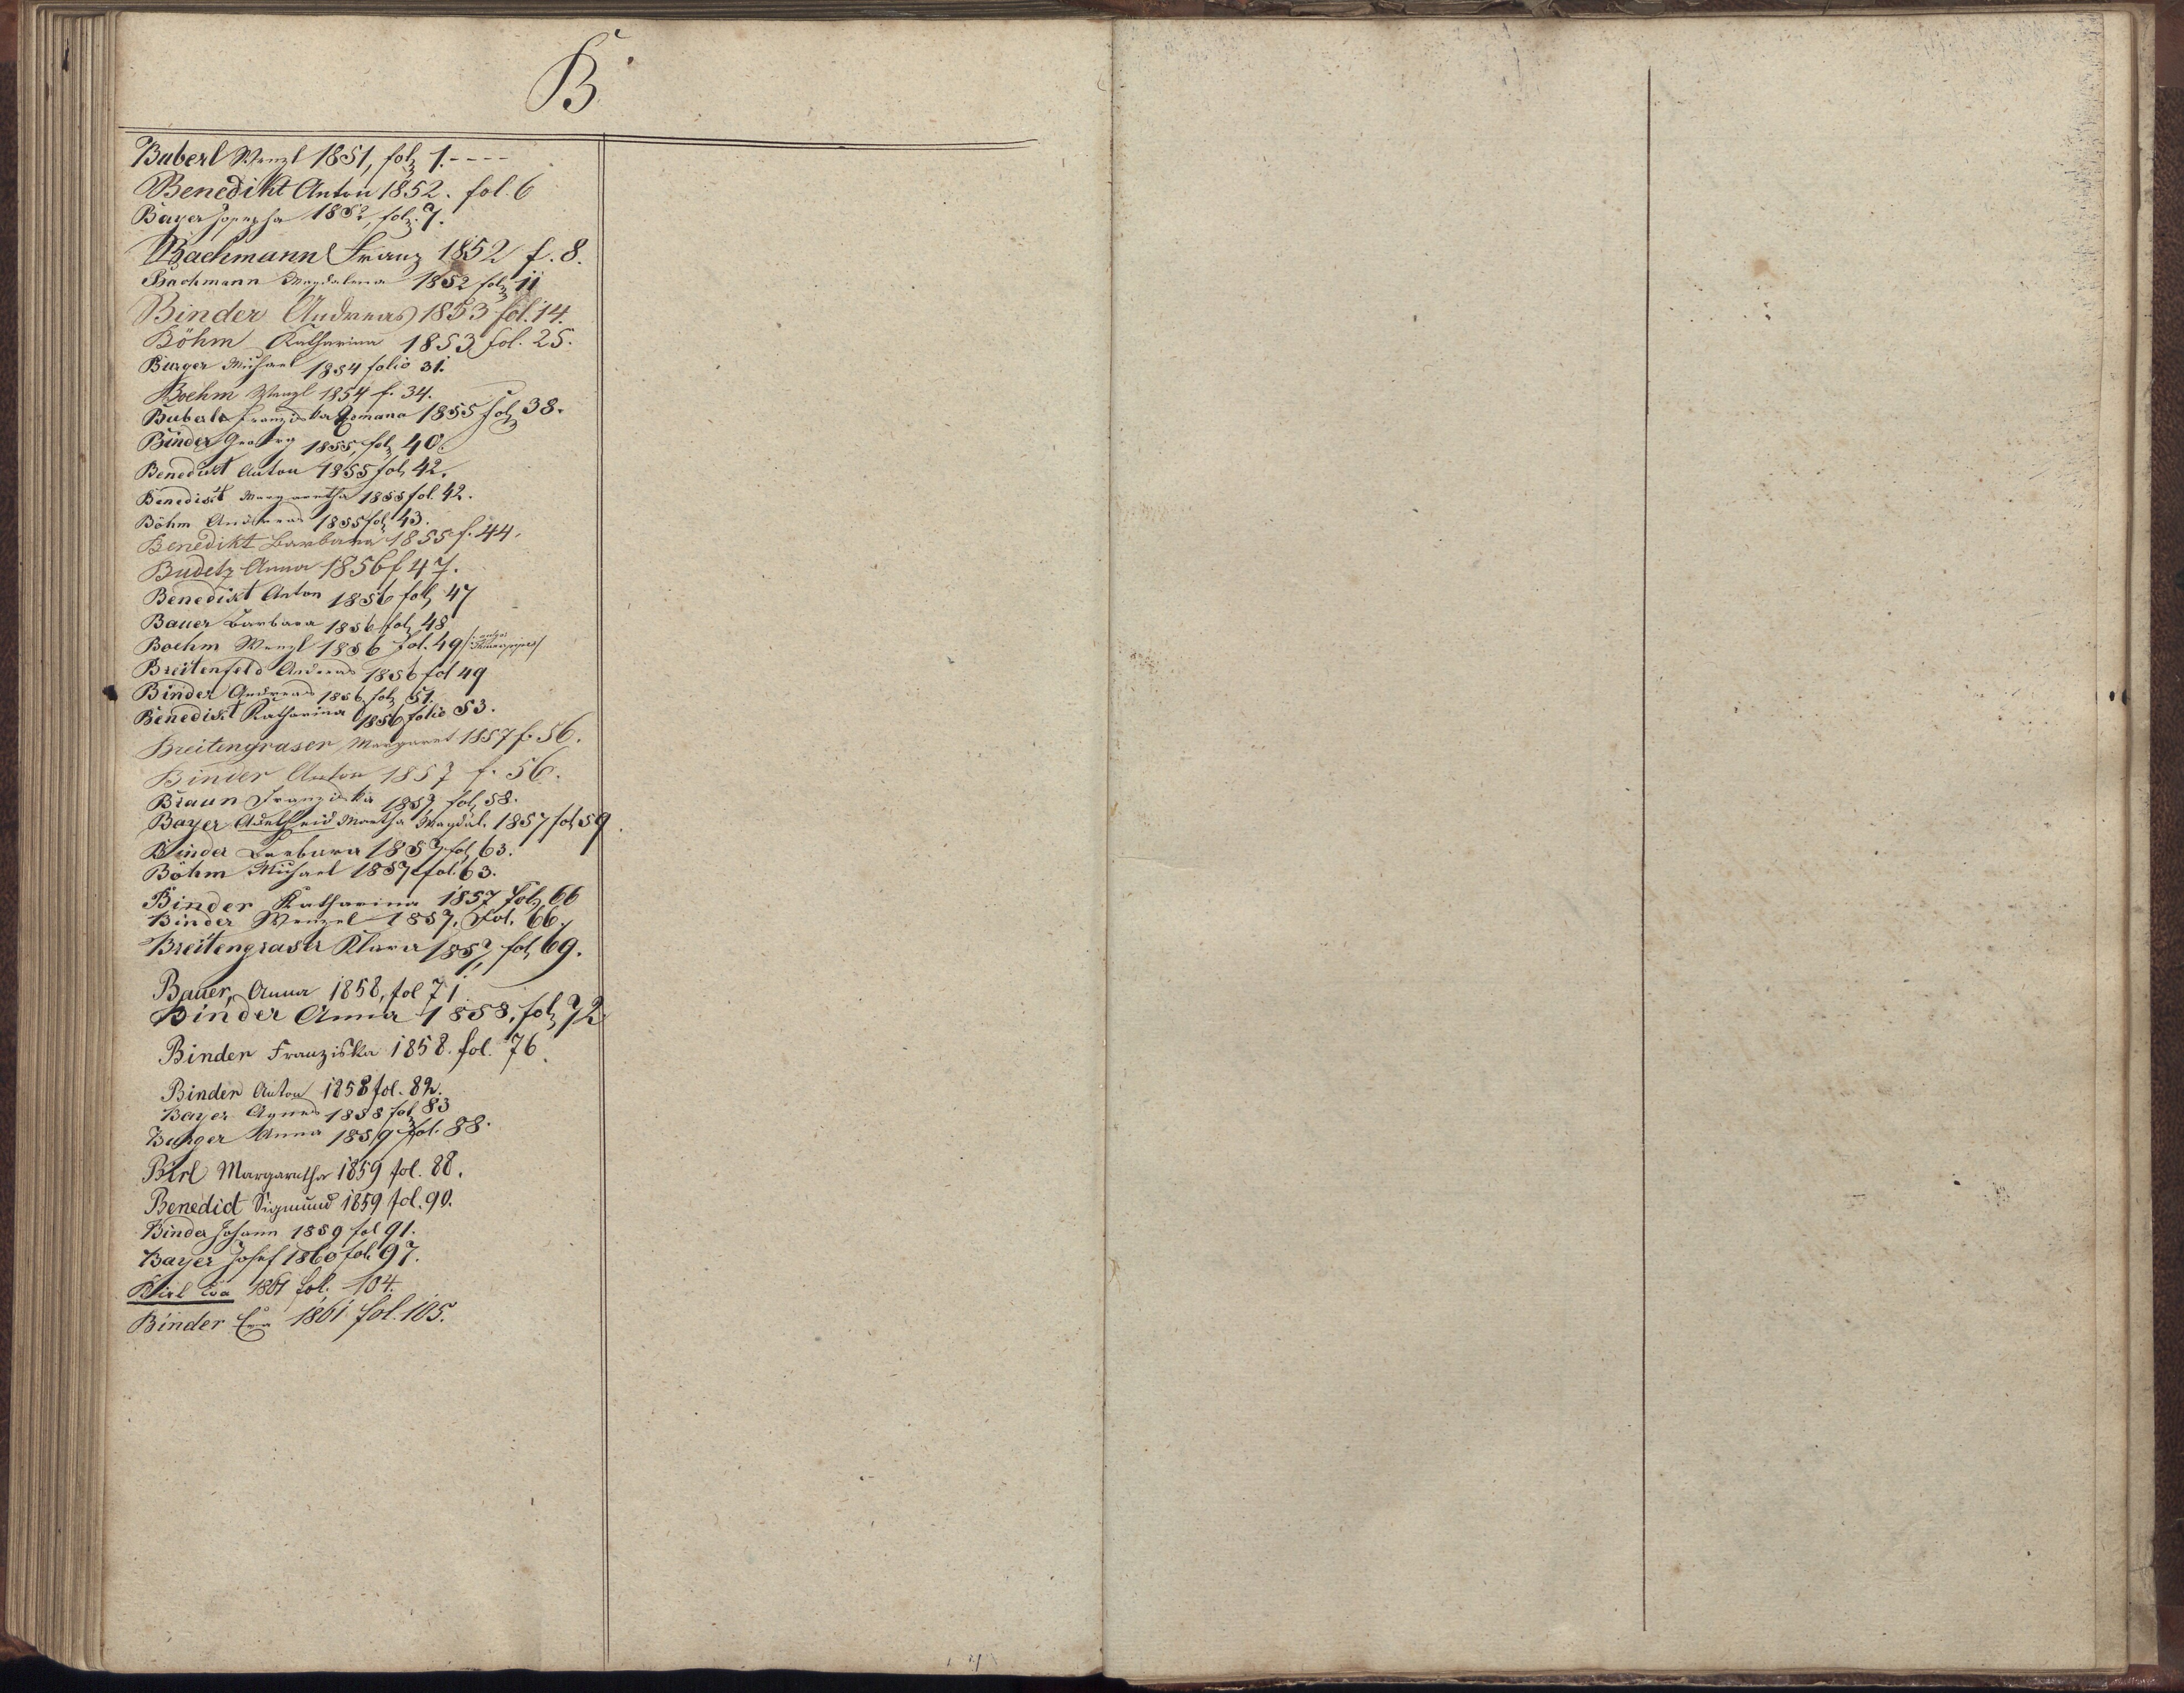 B
Buberl Wenzl 1851, fol. 1.----
Benedikt Anton 1852. fol. 6
Bayer Josepha 1852, fol. 7.
Bachmann Franz 1852 f. 8.
Bachmann Magdalena 1852 fol. 11
Binder Andreas 1853 fol. 14.
Böhm Katharina 1853 fol. 25.
Burger Michael 1854 folio 31.
Boehm Wenzl 1854 f. 34.
Buberl Franziska Romana 1855 fol. 38.
Binder Georg 1855, fol. 40
Benedikt Anton 1855 fol. 42.
Benedikt Margaretha 1855 fol. 42.
Böhm Andreas 1855 fol. 43.
Benedikt Barbara 1855 f. 44.
Budetz Anna 1856 f 47.
Benedikt Anton 1856 fol. 47
Bauer Barbara 1856 fol. 48
Boehm Wenzl 1856 fol. 49
Breitenfeld Andreas 1856 fol 49
Binder Andreas 1856 fol. 51.
Benedikt Katharina 1856 folio 53.
Breitengraser Margaret 1857 f. 56.
Binder Anton 1857 f. 56.
Braun Franziska 1857 fol. 58.
Bayer Adelheid Martha Magdal. 1857 fol. 59.
Binder Barbara 1857 fol. 63.
Böhm Michael 1857 fol. 63.
Binder Katharina 1857 fol. 66
Binder Wenzel 1857. Fol. 66.
Breitengraser Klara 1857, fol. 69.
Bauer, Anna 1858, fol 71
Binder Anna 1858, fol. 72
Binder Franziska 1858. fol. 76.
Binder Anton 1858 fol. 82.
Bayer Agnes 1858 fol. 83
Burger Anna 1859 fol. 88.
Birl Margaretha 1859 fol. 88.
Benedict Sigmund 1859 fol. 90.
Binder Johann 1859 fol 91.
Bayer Josef 1860 fol. 97.
Birl Eva 1861 fol. 104.
Binder Eva 1861 fol. 105.